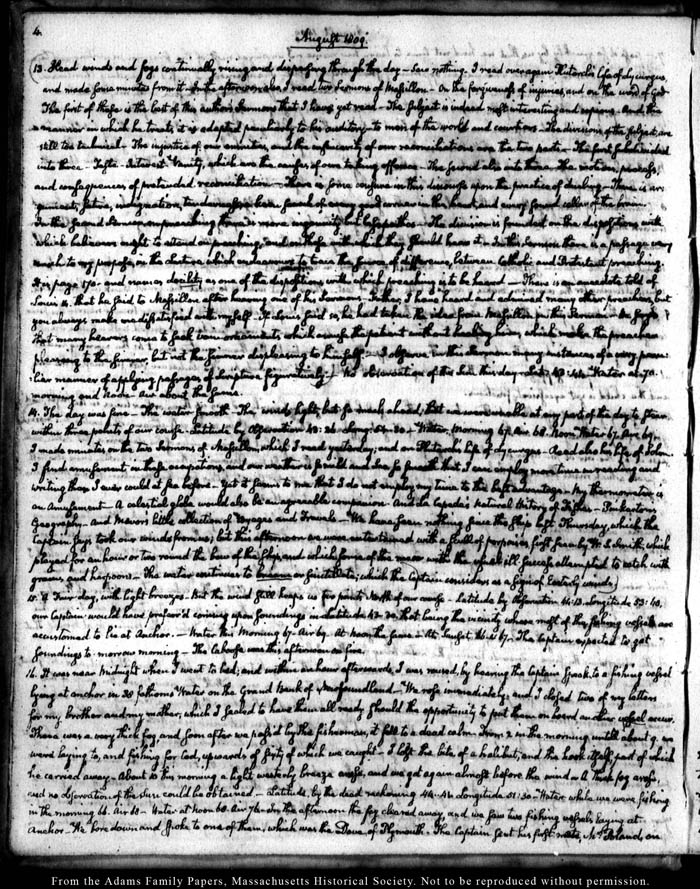 4.
August 1809.
13. Head winds and fogs continually rising and dispersing through the day — Saw nothing. I read over again Plutarch's life of Lycurgus,
and made some minutes from it. In the afternoon also, I read two Sermons of Massillon — On the forgiveness of injuries, and on the word of God
The first of these is the best of this author's Sermons that I have yet read — The subject is indeed most interesting and copious. And the
manner in which he treats it is adapted peculiarly to his auditory — to men of the world and courtiers — The divisions of the subject are
still too technical — The injustice of our enmities, and the insincerity of our reconciliations are the two parts — The first subdivided
into three — Taste — Interest — Vanity, which are the causes of our taking offence — The second also into three. The motives,
and consequences of pretended reconciliation — There is some censure in this discourse upon the practice of duelling — There is
In the second Sermon upon preaching there is more ingenuity but less pathos — The division is founded on the dispositions with
which believers ought to attend on preaching, and on those with which they should hear it — In this Sermon there is a passage very
much to my purpose, in the which endeavours to trace the source of difference, between Catholic and Protestant preaching.
It is page 170. and names docility as one of the dispositions with which preaching is to be heard — There is an anecdote told of
Louis 14. that he said to Massillon after hearing one of his Sermons — Father, I have heard and admired many other preachers, but
you always make me dissatisfied with myself. If Louis said so, he had taken the idea from Massillon in this Sermon — He says
that many hearers come to seek vain ornaments, which the patient without healing him, which make the preacher
pleasing to the sinner, but not the sinner displeasing to himself. — I observe in this Sermon many instances of a very
manner of applying passages of scripture figuratively. — No observation of the Sun this day — Water at 70.
morning and Noon. Air about the same.
14. The day was fine — The water smooth — The wind light, but so much ahead, that we were unable at any part of the day to steer
within three points of our course. Latitude by Observation 43: 26. Long: 54: 30 — Water, Morning 67. Air 68. Noon, Water 67. Air 69.
I made minutes on the two Sermons of Massillon, which I read yesterday; and on Plutarch's life of Lycurgus — Read also his life of Solon.
I find amusement in these occupations, and our weather is so mild and Sea so smooth that I can employ more time in reading and
writing than I ever could at sea before — Yet it seems to me that I do not employ my time to the best advantage — My thermometer is
an Amusement — A celestial globe would also be an agreeable companion — And La Cepede's Natural History of Fishes — Pinkerton's
Geography — And Mavor's little collection of Voyages and Travels — We have seen nothing since the Ship left Thursday, which the
Captain says took our winds from us; but this afternoon we were entertained with a scull of porpoises, first seen by W. S. Smith, which
played for an hour or two round the bow of the Ship, and which some of the men with the usual ill success attempted to catch with
grains, and harpoons — The water continues to or scintillate; which the Captain considers as a sign of Easterly winds.
15. A Fair day, with light breezes. But the wind still keeps us four points North of our course — Latitude by Observation 44:13. Longitude 53: 10.
our Captain would have preferr'd coming upon soundings in Latitude 43. 30. that being the vicinity where most of the fishing vessels are
accustomed to lie at Anchor. — Water this Morning 67. Air 69. At Noon the same — At Sunset 66 & 67. The Captain expected to get
soundings to-morrow morning — The Caboose was this afternoon on fire.
16. It was near Midnight when I went to bed; and within an hour afterwards I was roused, by hearing the Captain speak, to a fishing vessel
lying at anchor in 38 fathoms Water on the Grand Bank of Newfoundland — We rose immediately; and I closed two of my letters
for my brother and my mother, which I sealed to have them all ready should the opportunity to put them on board another vessel occur.
There was a very thick fog, and soon after we pass'd by the fisherman, it fell to a dead calm. From 2 in the morning until about 9 we
were laying to, and fishing for Cod, upwards of sixty of which we caught — I felt the bite of a halibut, and the hook itself, part of which
he carried away. About 10 this morning a light westerly breeze arose, and we got again almost before the wind — A thick fog arose
and no observation of the Sun could be obtained — Latitude, by the dead reckoning 44: 44. Longitude 51: 30 — Water while we were fishing
in the morning 60. Air 60 — Water at Noon 60. Air 74. In the afternoon the fog cleared away, and we saw two fishing vessels laying at
Anchor — We bore down and spoke to one of them, which was the Dove of Plymouth. The Captain sent his first mate, Mr. Boland, on
From the Adams Family Papers, Massachusetts Historical Society. Not to be reproduced without permission.